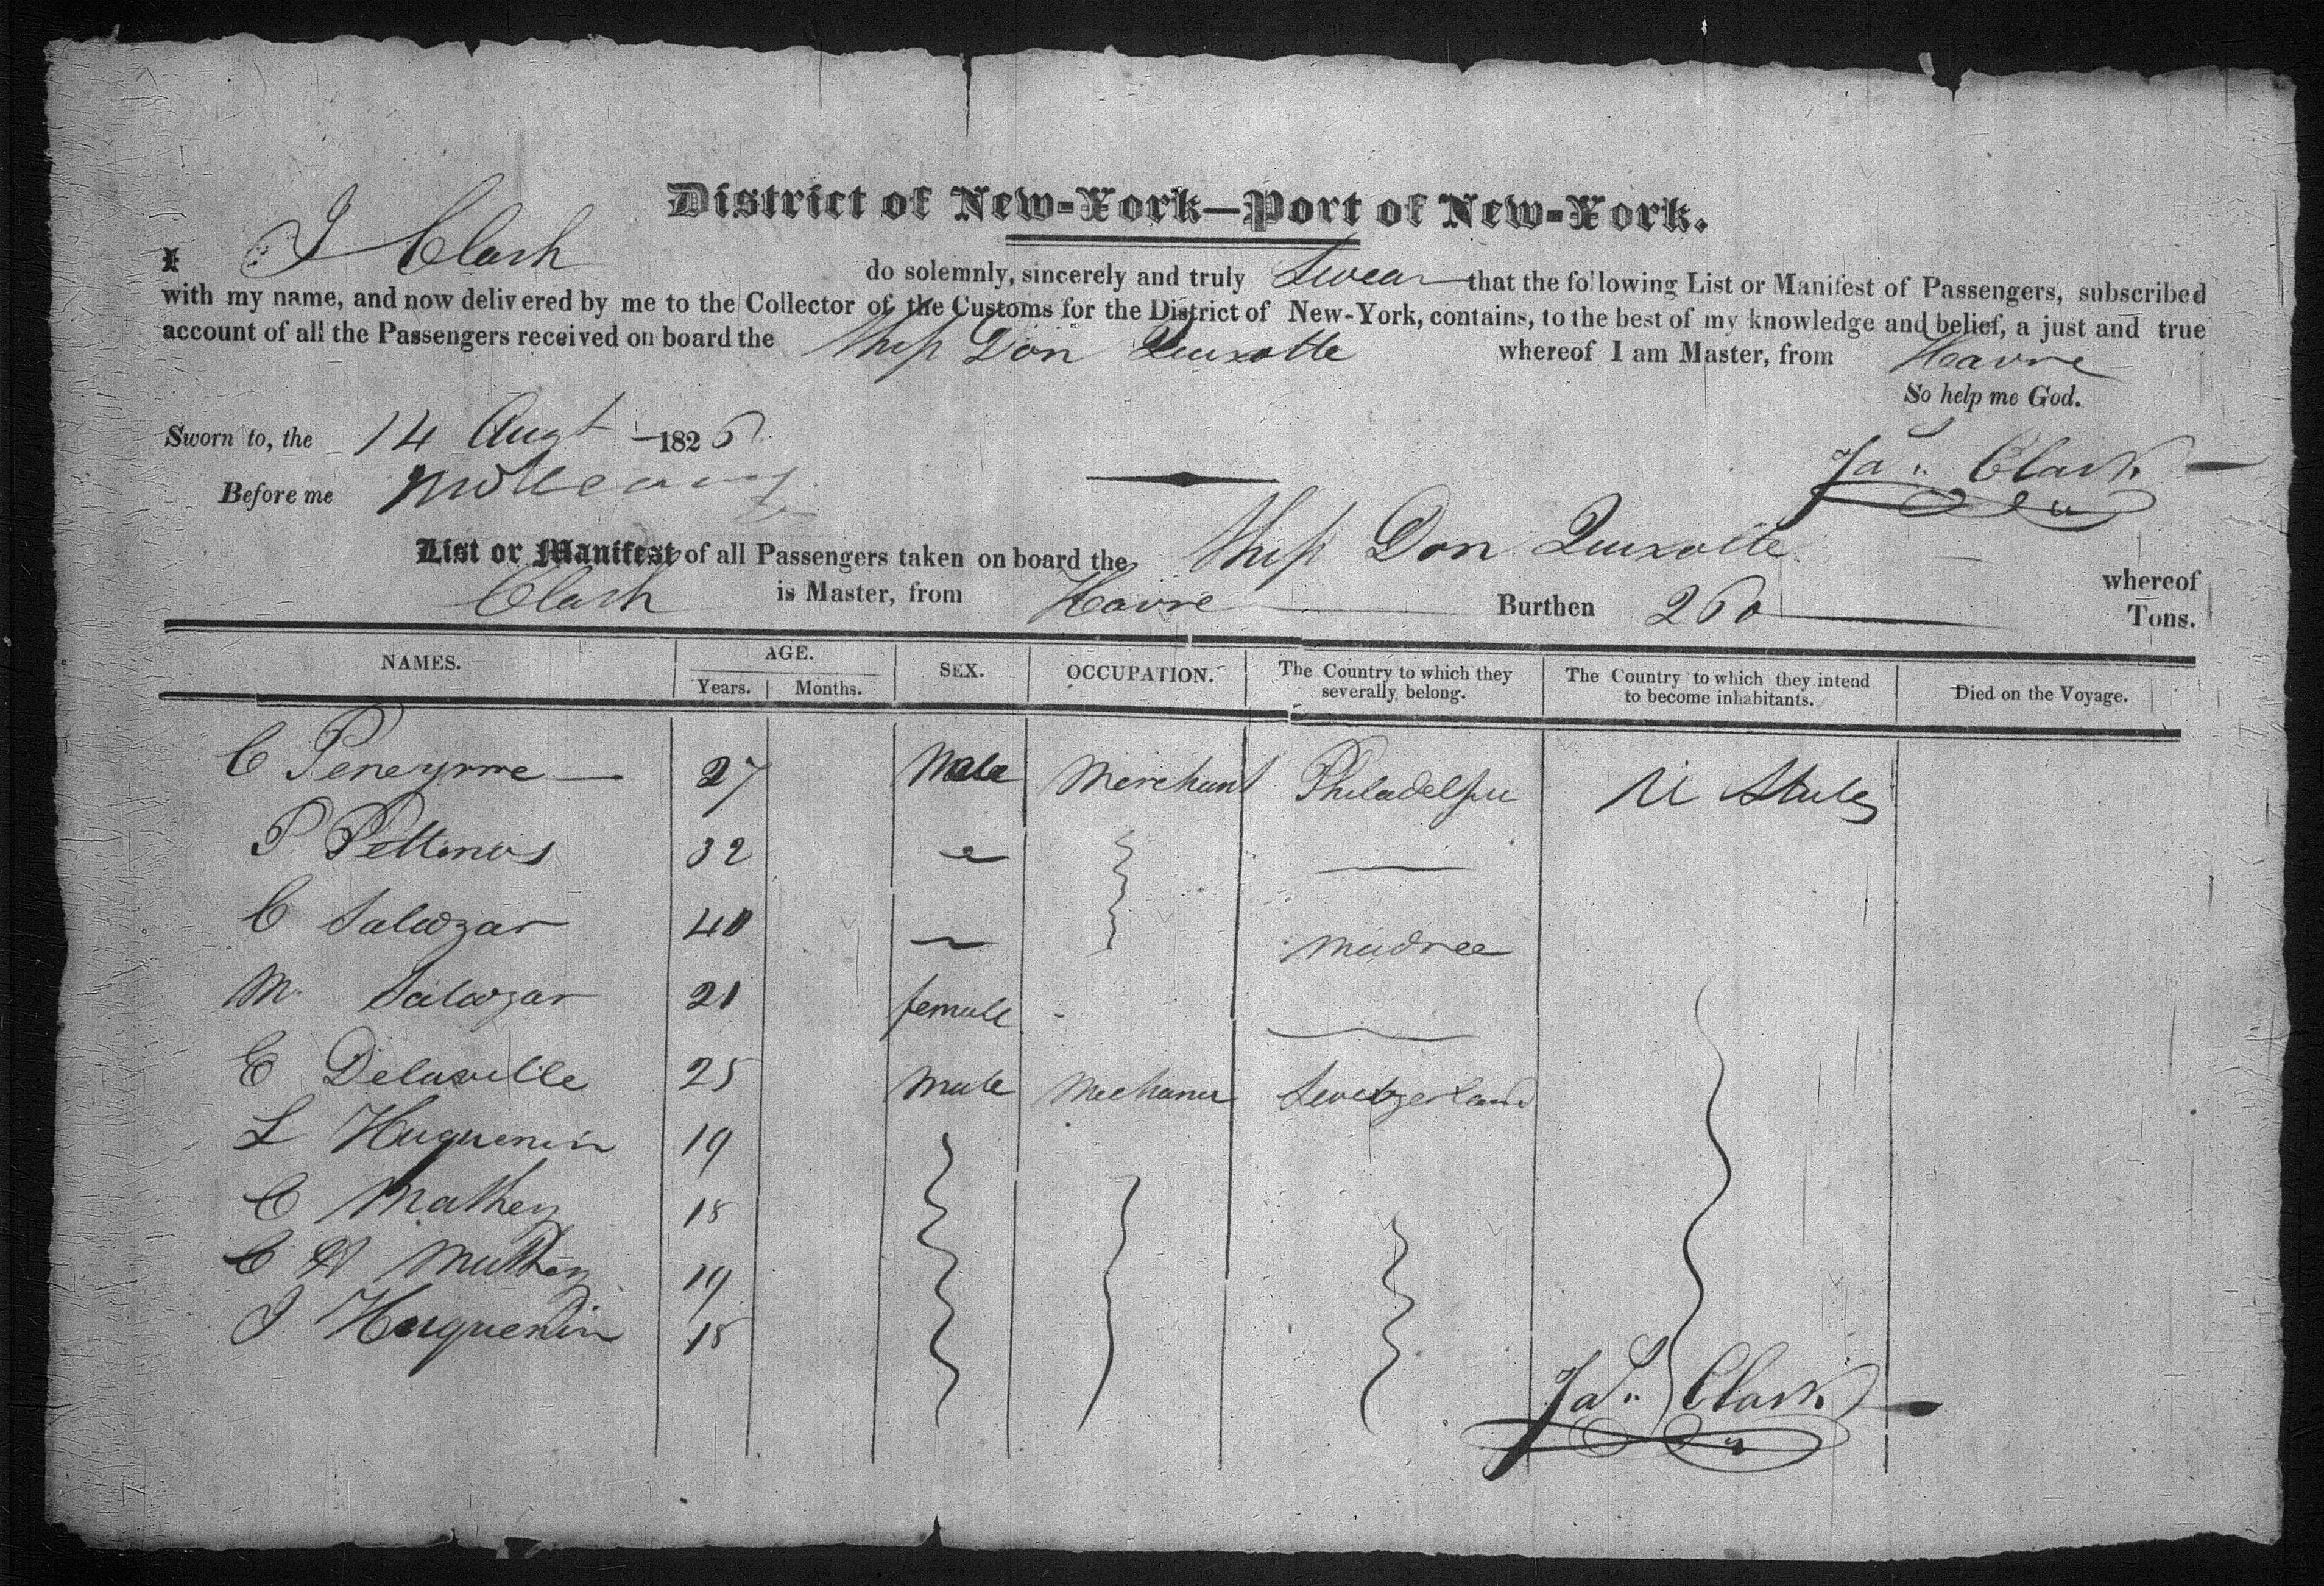 District of New-York—Port of New-York.
I J Clark do solemnly, sincerely and truly Swear that the following List or Manifest of Passengers, subscribed
with my name, and now delivered by me to the Collector of the Customs for the District of New-York, contains, to the best of my knowledge and belief, a just and true
account of all the Passengers received on board the Ship Don Quixotte whereof I am Master, from Havre
So help me God.
Sworn to, the 14 Augt 1826
Jas. Clark
Before me
List or Manifest of all Passengers taken on board the Ship Don Quixotte whereof
Clark is Master, from Havre Burthen 260 Tons.
NAMES. AGE. SEX. OCCUPATION. The Country to which they severally belong. The Country to which they intend to become inhabitants. Died on the Voyage.
Years. Months.
C 27 Male Merchant Philadelphi U States
P Pettinos 32
C Salazar 40 Madree
M. Salazar 21 female
E Delaville 25 Male Mechanic Switzerland
L Huguenin 19
C Mathey 18
C A Mathey 19
J Huguenin 18
Jas. Clark